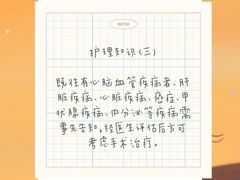 护理知识(三)
既往有心脑血管疾病者、肝
脏疾病、心脏疾病、癌症、甲
状腺疾病、内分泌等疾病需
事先告知，经医生评估后方可
考虑手术治疗。